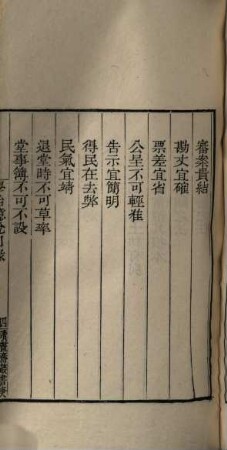 審案貴結
勘丈宜確
票差宜省
公呈不可輕准
告示宜簡明
得民在去弊
民氣宜靖
退堂時不可草率
堂事簿不可不設